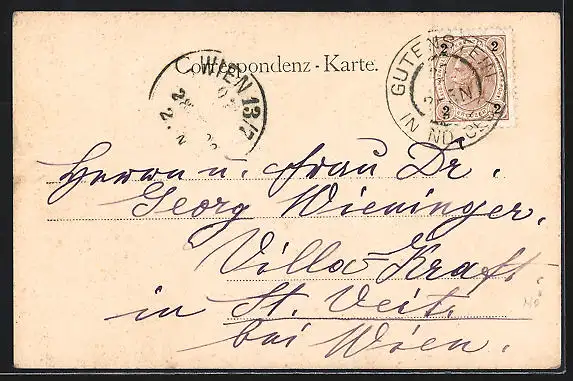 Correspondenz-Karte.
WIEN 13/7
GUTENSTEIN
IN N.Ö.
2 2
2 2
Herrn u. Frau Dr.
Georg Wieninger.
Villa-Kraft
in St. Veit.
bei Wien.